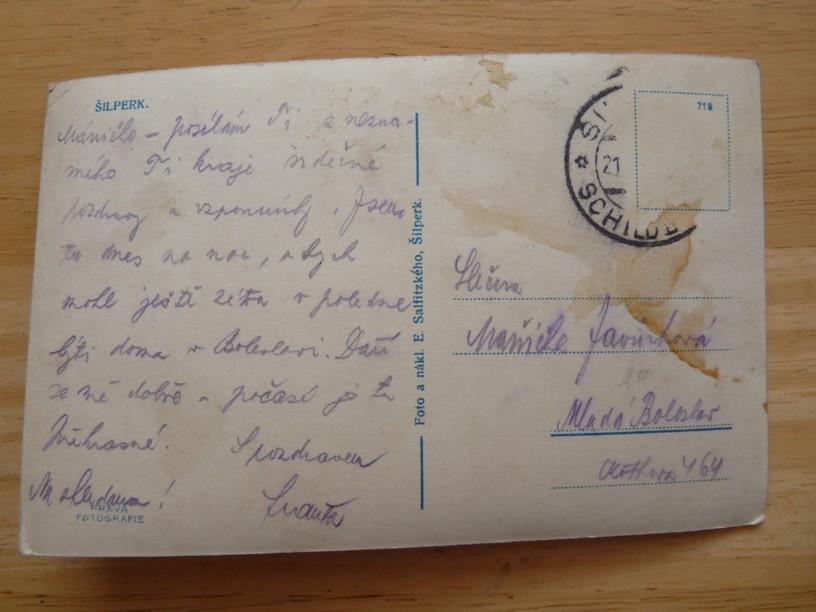 ŠILPERK.
Máničko - posílám Ti z nezna-
mého Ti kraje srdečné
pozdravy a vzpomínky. Jsem
tu dnes na noc, abych
mohl ještě zítra v poledne
býti doma v Boleslavi. Daří
se mě dobře a počasí je tu
překrásné. S pozdravem
Na shledanou!
PRAVÁ
FOTOGRAFIE
Foto a nákl. E. Salfitzkého, Šilperk.
21
SCHILDB
718
Slečna
Mladá Boleslav
464